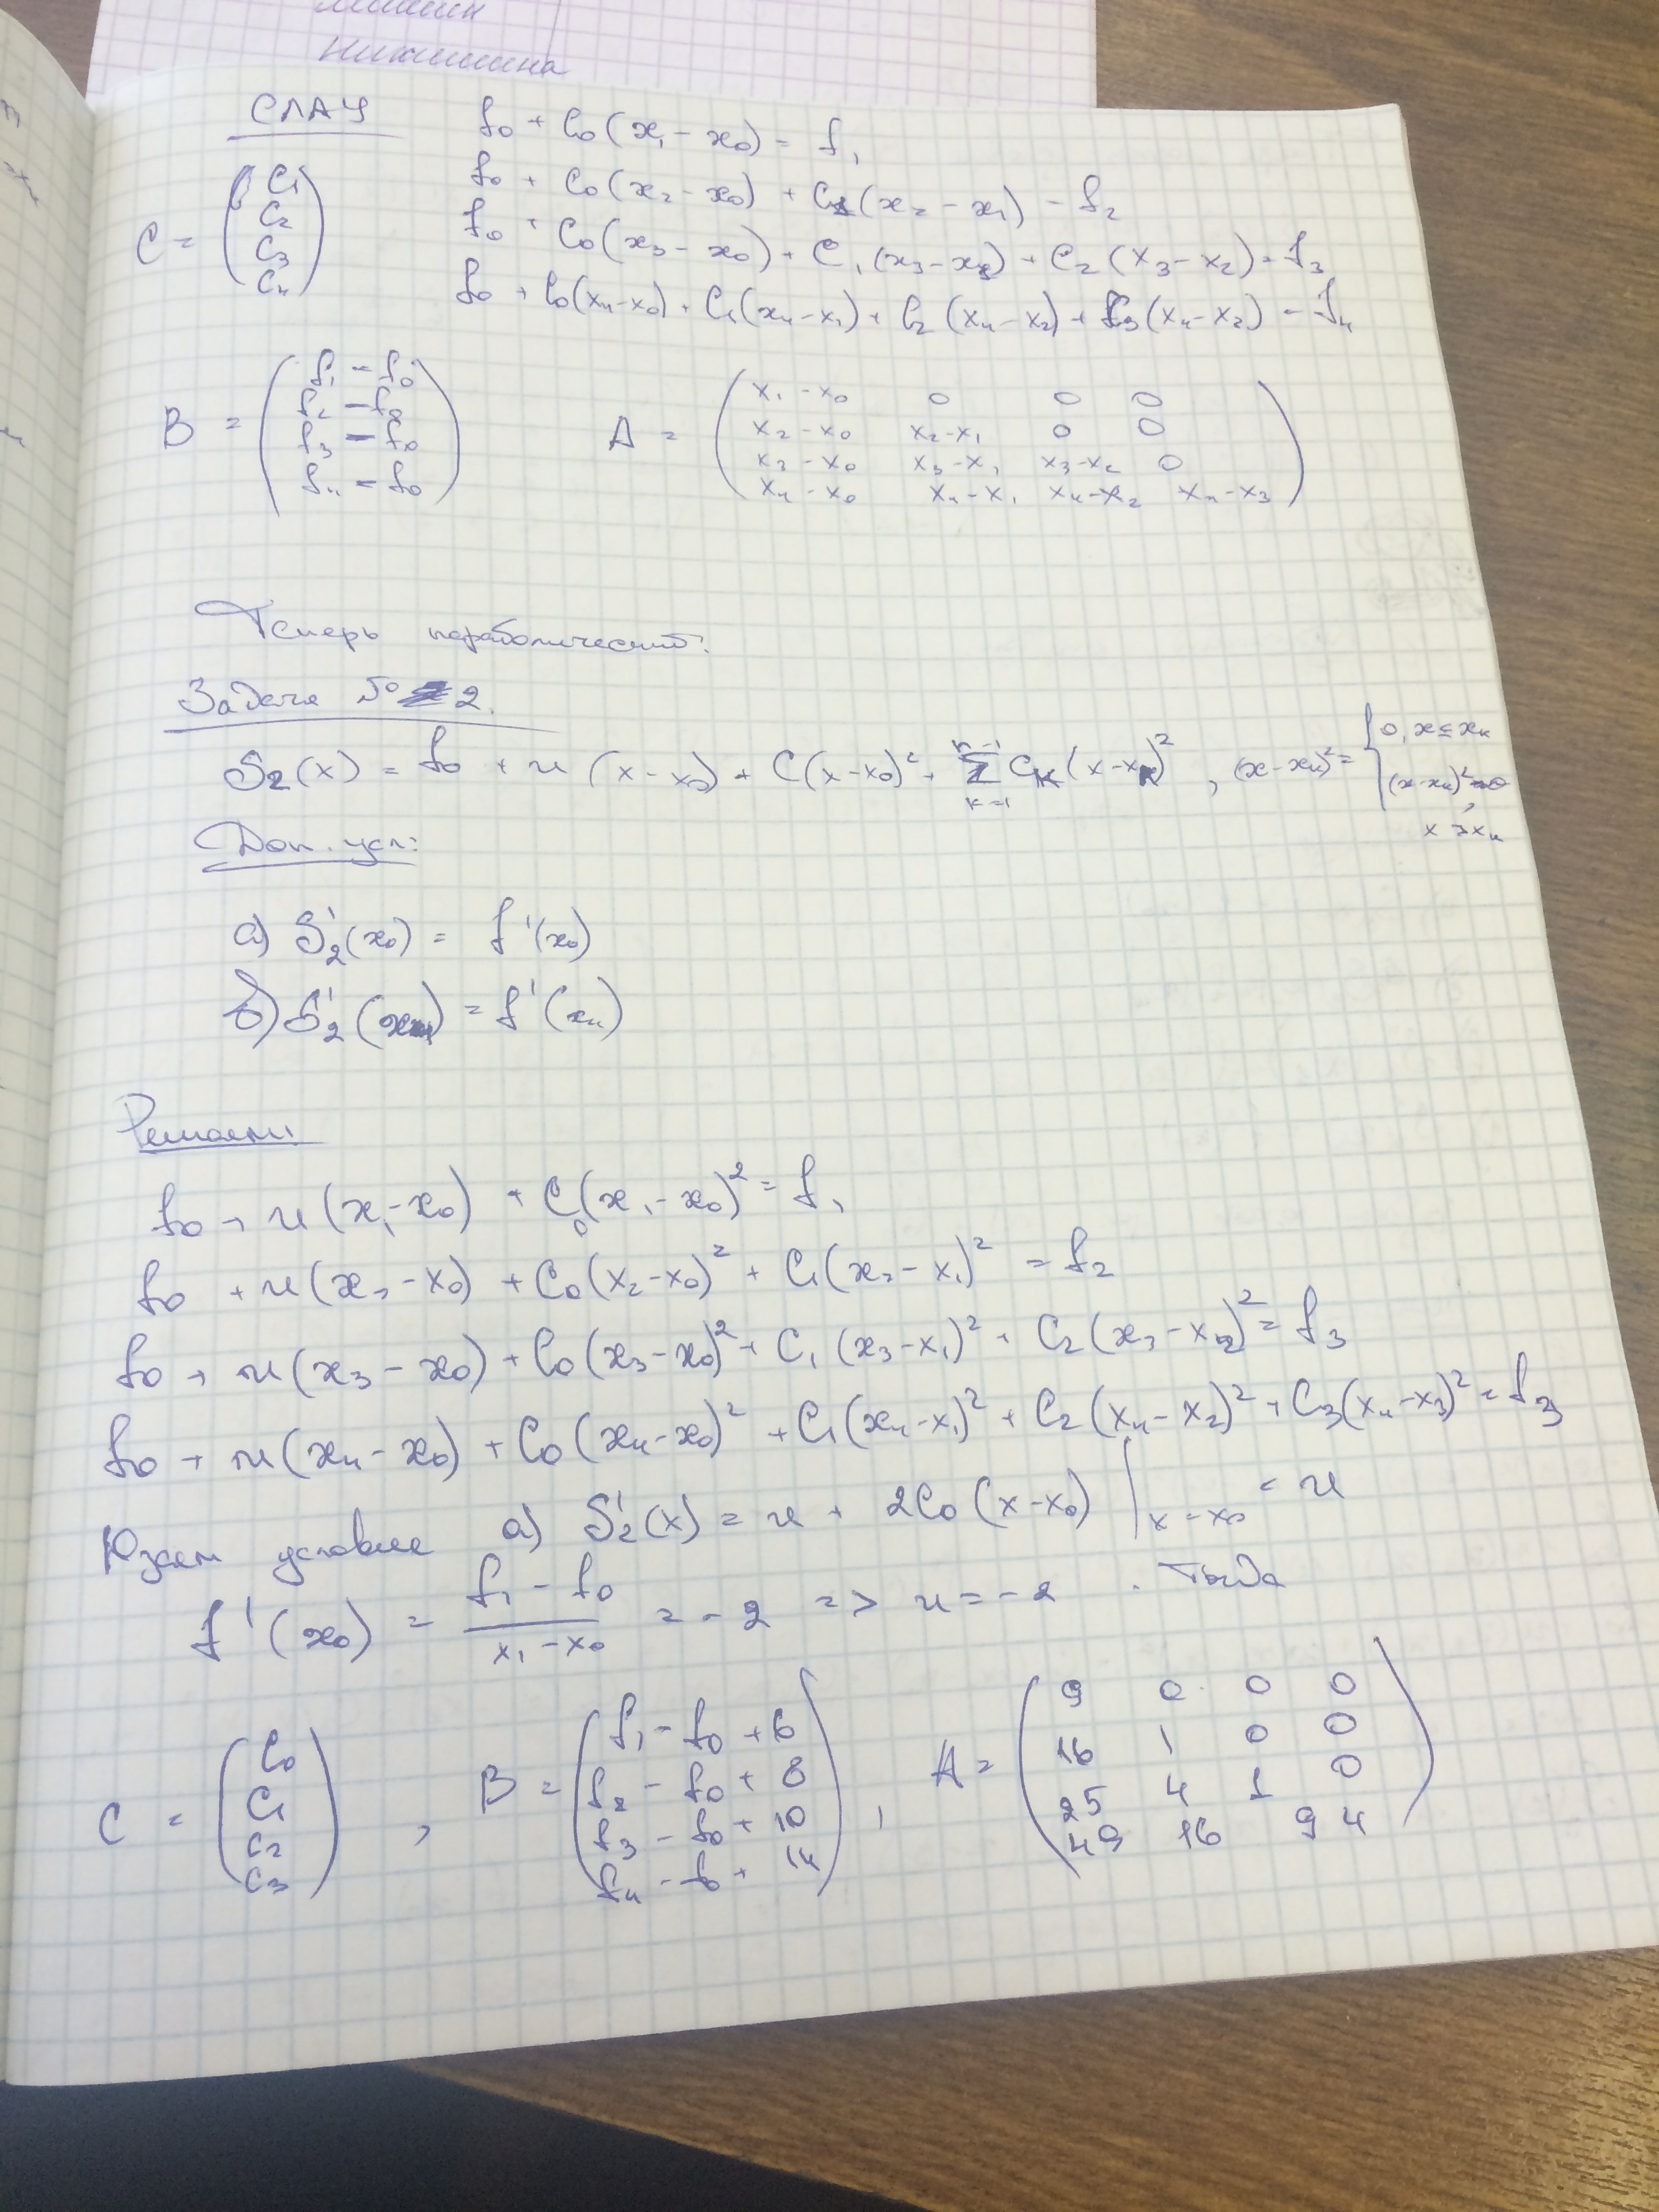 Никишина
СЛАУ
f₀ + C₀(x₁ - x₀) = f₁
f₀ + C₀(x₂ - x₀) + C₁(x₂ - x₁) = f₂
f₀ + C₀(x₃ - x₀) + C₁(x₃ - x₁) + C₂(x₃ - x₂) = f₃
f₀ + C₀(x₄ - x₀) + C₁(x₄ - x₁) + C₂(x₄ - x₂) + C₃(x₄ - x₂) = f₄
C = (C₁ C₂ C₃ C₄)
B = (f₁ - f₀
f₂ - f₀
f₃ - f₀
f₄ - f₀)
A = (x₁ - x₀ 0 0 0
x₂ - x₀ x₂ - x₁ 0 0
x₃ - x₀ x₃ - x₁ x₃ - x₂ 0
x₄ - x₀ x₄ - x₁ x₄ - x₂ x₄ - x₃)
Теперь параболический:
Задача № 2.
S₂(x) = f₀ + u(x - x₀) + C(x - x₀)² + Σ Cₖ(x - xₖ)², (x - xₖ)² = { 0, x ≤ xₖ
n-1
k=1
(x - xₖ)²,
x > xₖ
Доп. усл:
а) S₂'(x₀) = f'(x₀)
б) S₂'(x₄) = f'(x₄)
Решаем:
f₀ + u(x₁ - x₀) + C₀(x₁ - x₀)² = f₁
f₀ + u(x₂ - x₀) + C₀(x₂ - x₀)² + C₁(x₂ - x₁)² = f₂
f₀ + u(x₃ - x₀) + C₀(x₃ - x₀)² + C₁(x₃ - x₁)² + C₂(x₃ - x₂)² = f₃
f₀ + u(x₄ - x₀) + C₀(x₄ - x₀)² + C₁(x₄ - x₁)² + C₂(x₄ - x₂)² + C₃(x₄ - x₃)² = f₃
Юзаем условие а) S₂'(x) = u + 2C₀(x - x₀) |ₓ₌ₓ₀ = u
f'(x₀) = (f₁ - f₀)/(x₁ - x₀) = -2 => u = -2. Тогда
C = (C₀ C₁ C₂ C₃),
B = (f₁ - f₀ + 6
f₂ - f₀ + 8
f₃ - f₀ + 10
f₄ - f₀ + 14),
A = (9 0 0 0
16 1 0 0
25 4 1 0
49 16 9 4)